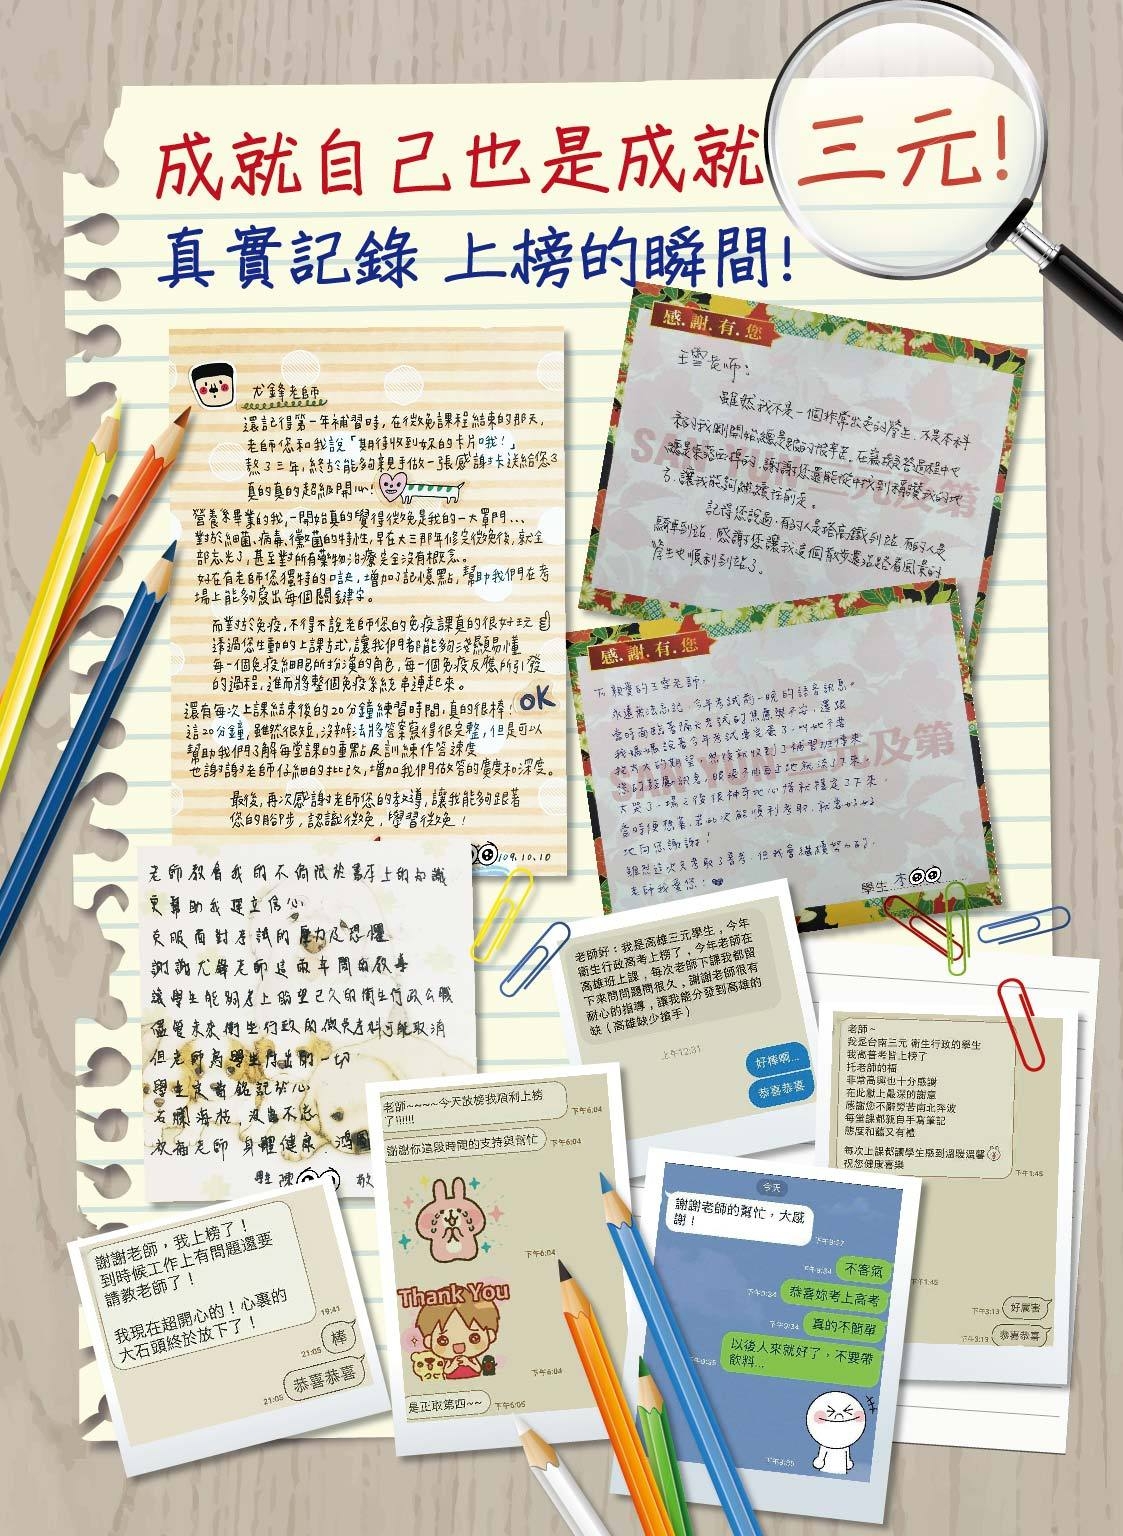 成就自己也是成就三元!
真實記錄 上榜的瞬間!
尤鋒老師
還記得第一年補習時,在微免課程結束的那天,
老師您和我說「期待收到妳的卡片哦!」
熬了三年,終於能夠親手做一張感謝卡送給您了
真的真的超級開心!
營養系畢業的我,一開始真的覺得微免是我的一大罩門...
對於細菌、病毒、黴菌的特性,早在大三那年修完微免後,就全
部忘光了,甚至對所有藥物治療完全沒有概念。
好在有老師您獨特的口訣,增加了記憶點,幫助我們在考
場上能夠寫出每個關鍵字。
而對於免疫,不得不說老師您的免疫課真的很好玩
透過您生動的上課方式,讓我們都能夠淺顯易懂
每一個免疫細胞所扮演的角色,每一個免疫反應所引發
的過程,進而將整個免疫系統串連起來。
還有每次上課結束後的20分鐘練習時間,真的很棒!
OK
這20分鐘,雖然很短,沒辦法將答案寫得很完整,但是可以
幫助我們了解每堂課的重點及訓練作答速度
也謝謝老師仔細的批改,增加我們作答的廣度和深度。
最後,再次感謝老師您的教導,讓我能夠跟著
您的腳步,認識微免,學習微免!
109.10.10
感.謝.有.您
王雲老師:
雖然我不是一個非常出色的學生,又是不本科
系的我剛開始總是聽的很辛苦。在寫
總是
方,讓我能夠繼續往前走。
記得您說過,有的人是搭高鐵到站,有的人是
騎車到站,感謝您讓我這個散步還沿路看風景的
學生也順利到站了。
感.謝.有.您
To 親愛的王雲老師,
永遠無法忘記,今年考試前一晚的語音訊息。
當時面臨著隔天考試的焦慮與不安,還跟
我媽媽說著今年考試要完蛋了,叫她不要
抱太大的期望,然後就收到了補習班傳來
您的鼓勵訊息,眼淚不聽話地就流了下來。
大哭了一場之後很神奇地心情就穩定了下來。
當時便想著,若此次能順利考取,就當好好
地向您謝謝!
雖然這次只考取了普考,但我會繼續努力的,
老師我愛您!
學生 李
老師教會我的不侷限於書本上的知識
更幫助我建立信心
克服面對考試的壓力及恐懼
謝謝尤鋒老師這兩年間的教導
讓學生能夠考上盼望已久的衛生行政公職
儘管未來衛生行政的微免考科可能取消
但老師為學生付出的一切
學生定當銘記於心
石爛海枯,沒齒不忘
祝福老師 身體健康 鴻圖
學生 陳 敬
老師好:我是高雄三元學生,今年
衛生行政高考上榜了,今年老師在
高雄班上課,每次老師下課我都留
下來問問題問很久,謝謝老師很有
耐心的指導,讓我能分發到高雄的
缺(高雄缺少搶手)
上午12:31
好棒啊...
恭喜恭喜
老師~
我是台南三元 衛生行政的學生
我高普考皆上榜了
托老師的福
非常高興也十分感謝
在此獻上最深的謝意
感謝您不辭勞苦南北奔波
每堂課都就自手寫筆記
態度和藹又有禮
每次上課都讓學生感到溫暖溫馨
祝您健康喜樂
下午1:45
下午1:45
下午3:13 好厲害
下午3:13 恭喜恭喜
謝謝老師,我上榜了!
到時候工作上有問題還要
請教老師了!
我現在超開心的!心裏的
大石頭終於放下了!
19:41
21:05 棒
21:05 恭喜恭喜
老師~~~~今天放榜我順利上榜
了!!!!!!
下午6:04
謝謝你這段時間的支持與幫忙
下午6:04
下午6:04
Thank You
下午6:04
是正取第四~~
下午6:05
今天
謝謝老師的幫忙,大感
謝!
不客氣
恭喜妳考上高考
真的不簡單
以後人來就好了,不要帶
飲料...